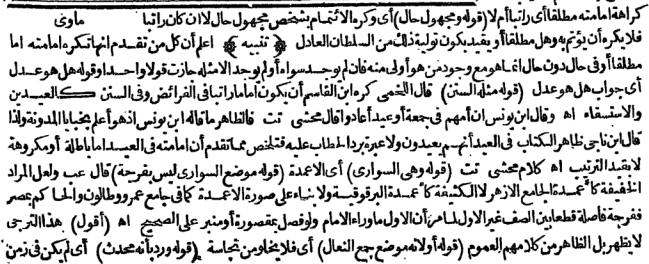 كراهة امامته مطلقا أى راتبا أم لا (قوله ومجهول حال) أى وكره الائتمام بشخص مجهول حال لا ان كان راتبا
فلا يكره أن يؤتم به وهل مطلقا أو يقيد بكون تولية ذلك من السلطان العادل ﴿ تنبيه ﴾ اعلم أن كل من تقدم انها تكره امامته اما
مطلقا أو فى حال دون حال انما هو مع وجود من هو أولى منه فان لم يوجد سواه أو لم يوجد الا مثله جازت قولا واحدا وقوله هل هو عدل
أى جواب هل هو عدل (قوله مثله السنن) قال اللخمى كره ابن القاسم أن يكون اماما راتبا فى الفرائض وفى السنن كالعيدين
والاستسقاء اه وقال ابن يونس ان أمهم فى جمعة أو عيد أعادوا قال محشى تت فالظاهر ما قاله ابن يونس اذ هو أعلم بخبايا المدونة ولذا
قال ابن ناجى ظاهر الكتاب فى العيد أنهم يعيدون ولا عبرة برد الحطاب عليه فتلخص مما تقدم أن امامته فى العيد اما باطلة أو مكروهة
لا بقيد الترتيب اه كلام محشى تت (قوله وهى السوارى) أى الاعمدة (قوله موضع السوارى ليس بفرجة) قال عب ولعل المراد
الخفيفة كاعمدة الجامع الازهر لا الكثيفة كاعمدة البرقوقية ولا بناء على صورة الاعمدة كما فى جامع عمرو وطالون والحاكم بمصر
ففرجة فاصلة قطعا بين الصف غير الاول لما مر أن الاول ما وراء الامام ولو فصل بمقصورة أو منبر على الصحيح اه (أقول) هذا الترجى
لا يظهر بل الظاهر من كلامهم العموم (قوله أو لانه موضع جمع النعال) أى فلا يخلو من نجاسة (قوله ورد بأنه محدث) أى لم يكن فى زمن